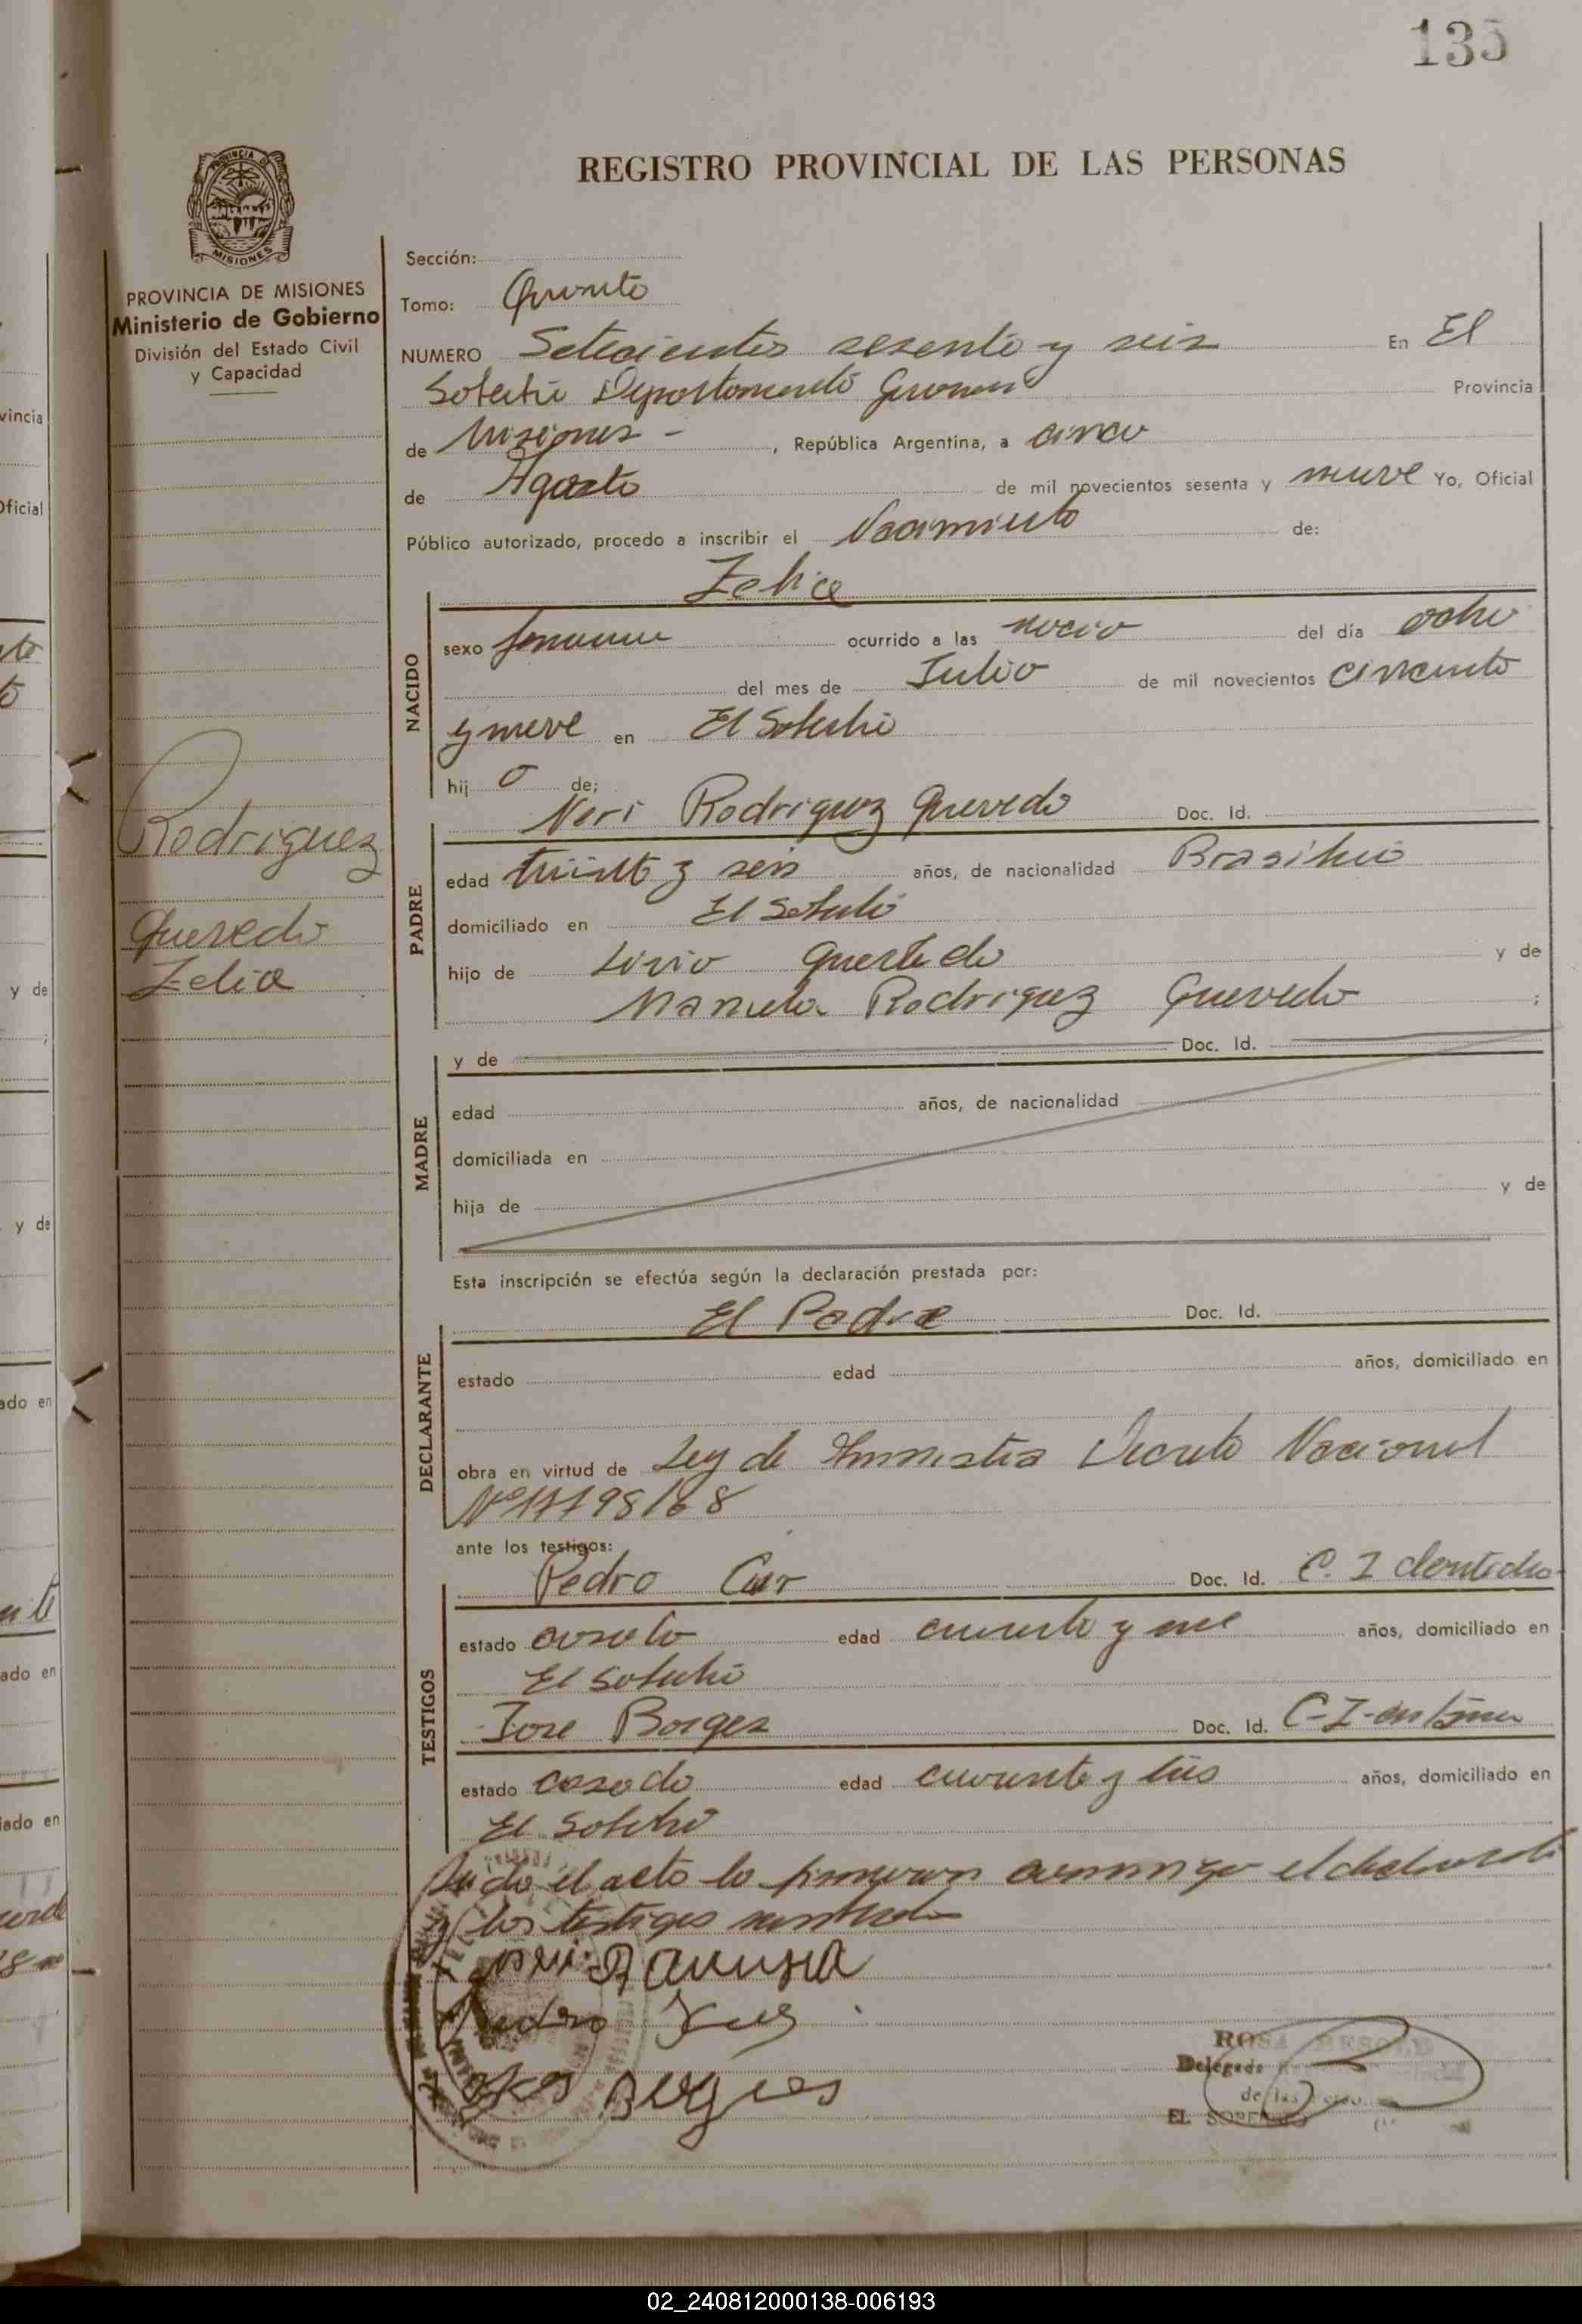 135
REGISTRO PROVINCIAL DE LAS PERSONAS
PROVINCIA DE MISIONES
PROVINCIA DE MISIONES
Ministerio de Gobierno
División del Estado Civil
y Capacidad
Sección:
Tomo: Quinto
NUMERO Setecientos sesenta y seis En El
Soberbio Departamento Guarani Provincia
de Misiones - , República Argentina, a cinco
de Agosto de mil novecientos sesenta y nueve Yo, Oficial
Público autorizado, procedo a inscribir el Nacimiento de:
Zelia
NACIDO
sexo femenino ocurrido a las del día ocho
del mes de Julio de mil novecientos cincuenta
y nueve en El Soberbio
hij de;
Rodriguez
Quevedo
Zelia
PADRE
Neri Rodriguez Quevedo Doc. Id.
edad treinta y seis años, de nacionalidad Brasileño
domiciliado en El Soberbio
hijo de Livio Quevedo y de
Manuela Rodriguez Quevedo ;
MADRE
y de Doc. Id.
edad años, de nacionalidad
domiciliada en
hija de y de
Esta inscripción se efectúa según la declaración prestada por:
El Padre Doc. Id.
DECLARANTE
estado edad años, domiciliado en
obra en virtud de Ley de Amnistia Decreto Nacional
Nº 17198/68
ante los testigos:
TESTIGOS
Pedro Doc. Id. C. I
estado casado edad años, domiciliado en
El Soberbio
Jose Borges Doc. Id. C-I-
estado casado edad cuarenta y años, domiciliado en
El Soberbio
el acto lo firmaron conmigo el declarante
y los testigos
ROSA
Delegada
de las
EL SOBERBIO
02_240812000138-006193